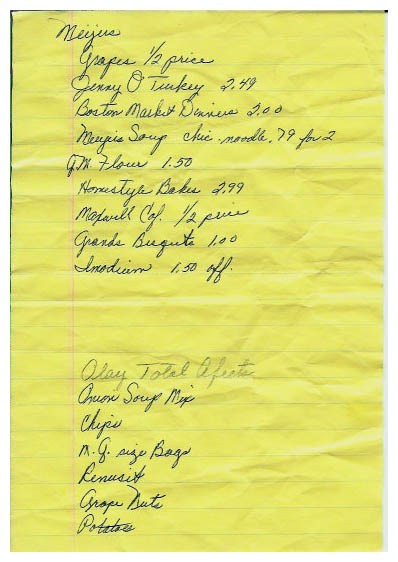 Meijers
Grapes 1/2 price
Jenny O Turkey 2.49
Boston Market Dinners 2.00
Meijers Soup chic. noodle .79 for 2
G.M. Flour 1.50
Homestyle Bakes 2.99
Maxwell Cof. 1/2 price
Grands Bisquits 1.00
Imodium 1.50 off.
Olay Total Afects
Onion Soup Mix
Chips
size Bags
Renusit
Grape Nuts
Potatoes